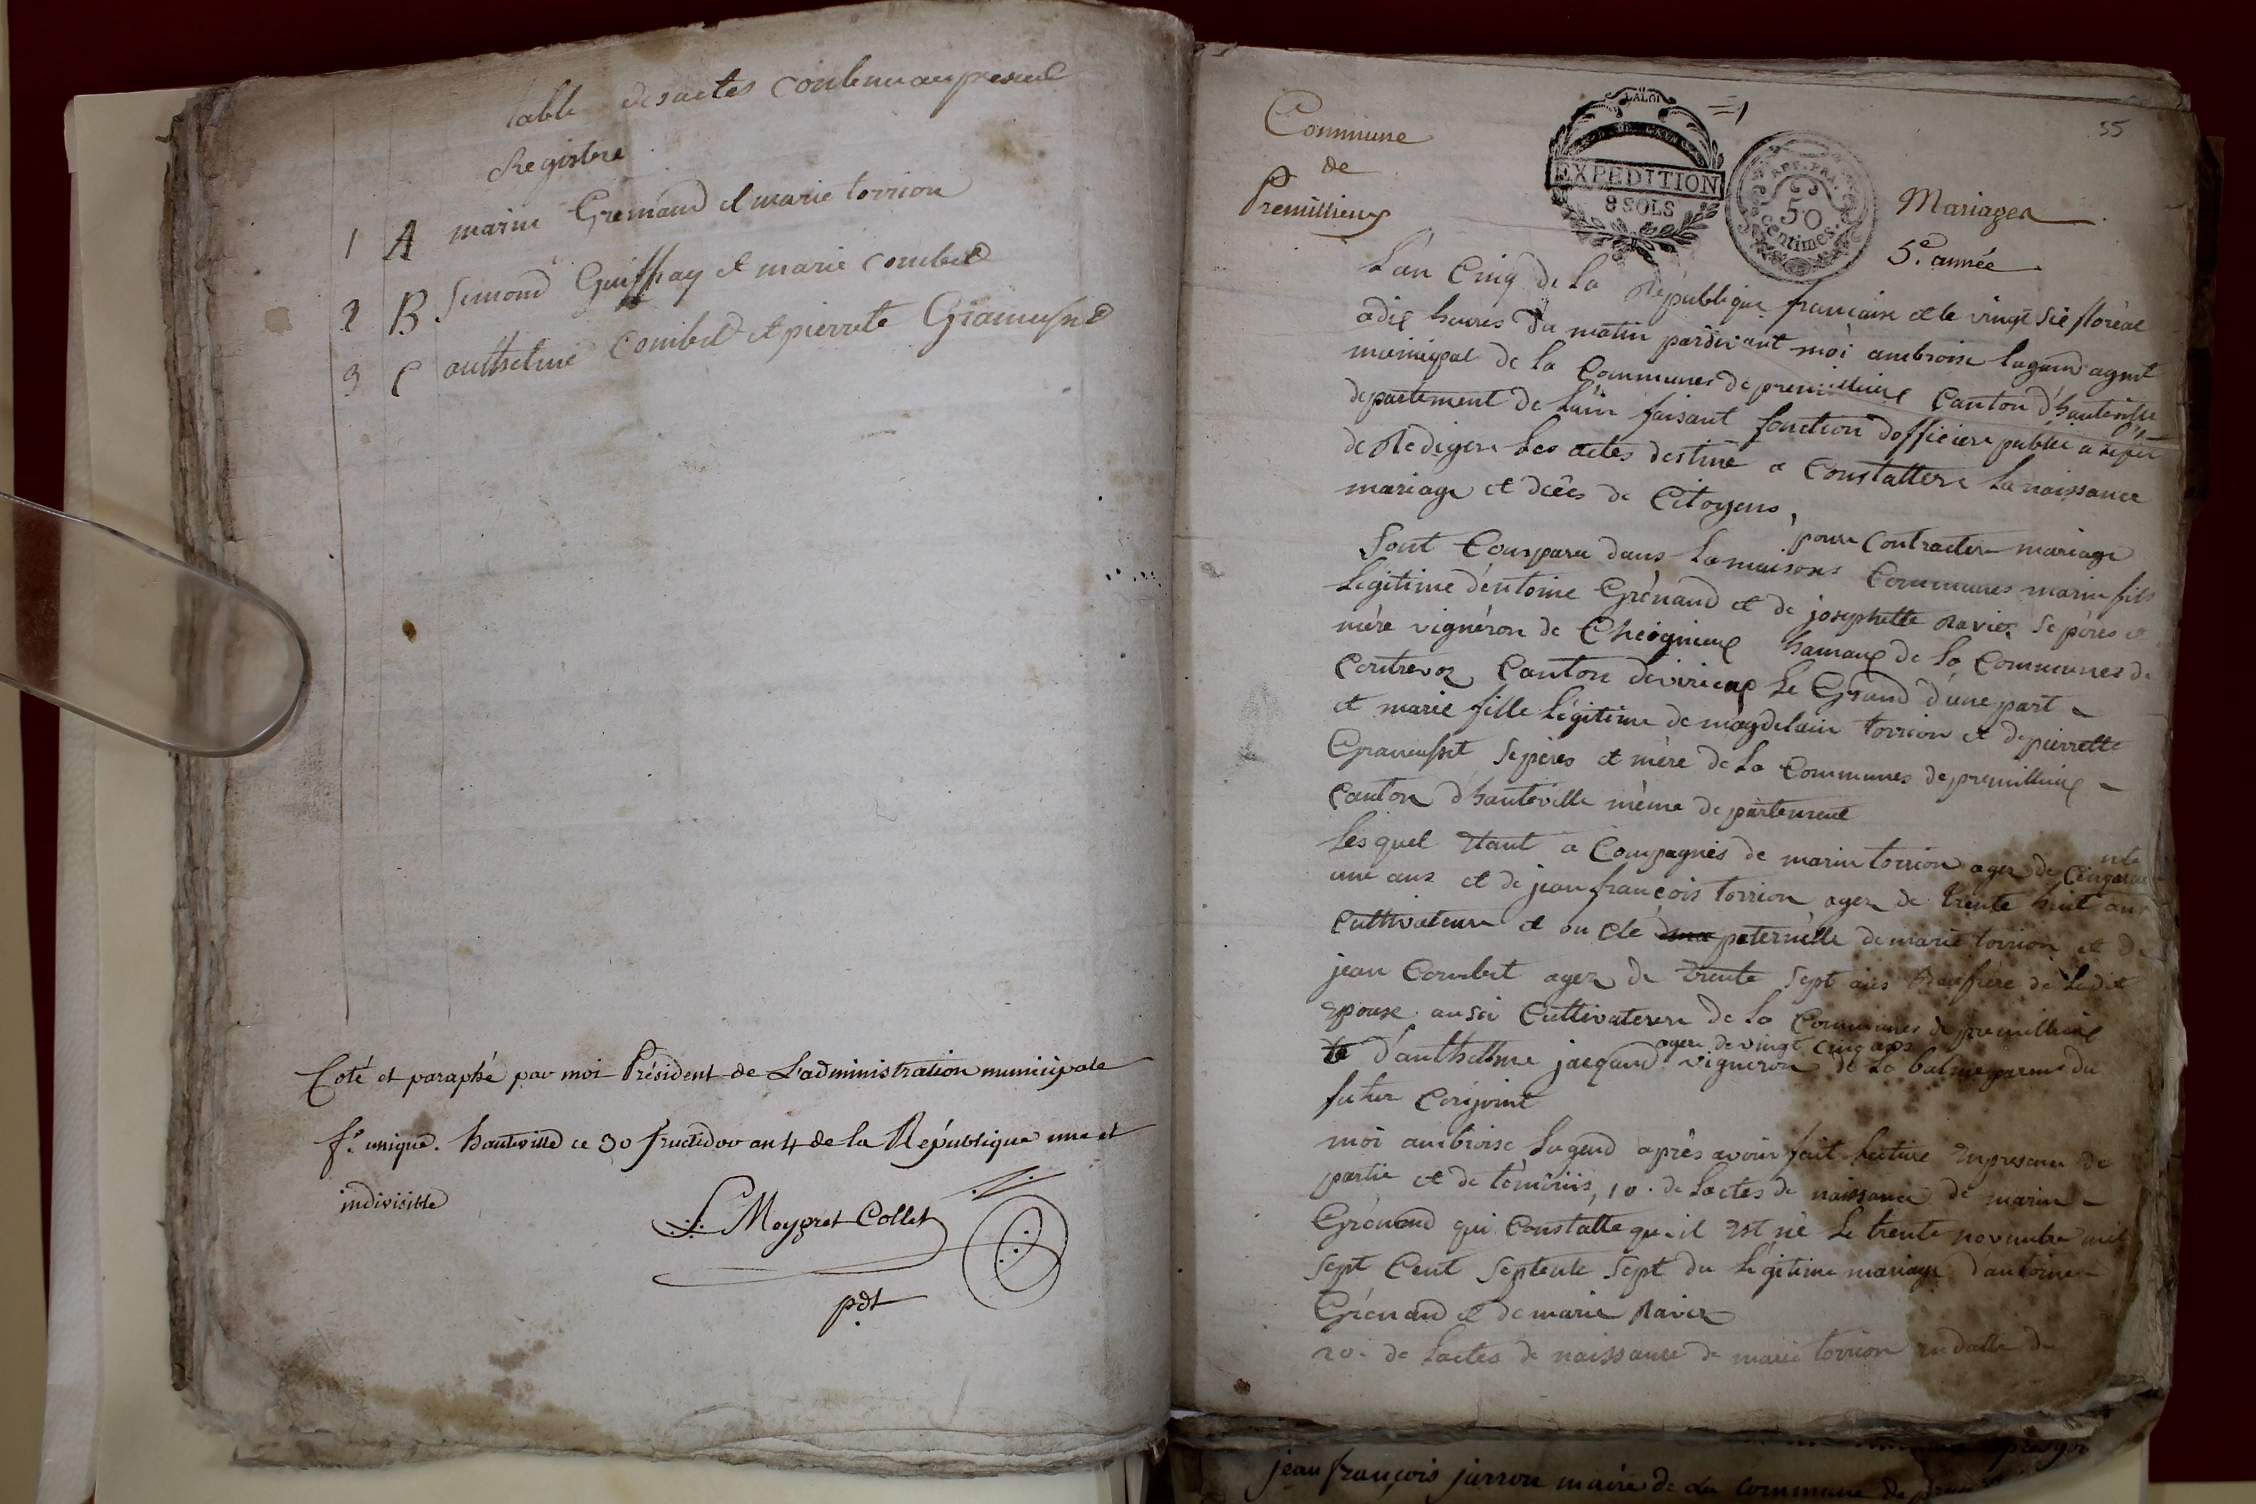 table des actes contenu au present
Registre
1 A marin Grenaud et marie torrion
2 B Simond Guiffray et marie combet
3 C anthelme Combet et pierrete Gramusset
Coté et paraphé par moi Président de L'administration municipale
f.º unique. hauteville ce 30 fructidor an 4 de la République une et
indivisible
L Meygret Collet
pdt
55
Commune
de
Premillieux
LA LOI
EXPEDITION
8 SOLS
REP. FRA.
50
centimes.
Mariages
5.e année
L'an Cinq de La République francaise et le vingt sie floréal
a die heures du matin pardevant moi ambroise lagend agent
municipal de la Communes de premillieux Canton d'hauteville
departement de Lain faisant fonction dofficiere public a
de Redigere Les actes destiné a Constattere La naissance
mariage et décès de Citoyens,
pour contracter mariage
Sont Comparu dans La maisons Communes marin fils
Legitime d'entoine Grénaud et de josephette Ravier Se péres et
mére vignéron de Cheignieux hamaux de la Communes de
Contrevoz Canton de virieux Le Grand d'une part
et marie fille Légitime de magdelain torrion et de pierrette
Gramusset Se péres et mére de La Communes de premillieux
Canton d'hauteville même departement
Les quel Etant a Compagnés de marin torrion ager de Cinqua nte
une ans et de jean françois torrion ager de trente huit ans
Cultivateure et on cle paternelle de marie torrion et de
jean Combet ager de trente Sept ans Beaufrere de Ladit
Epouse ausi Cultivatere de La Communes de premillieux
ager de vingt cinq ans
et d'anthelme jacquand vigneron de La balme parens du
futur Conjoint
moi ambroise Lagend aprês avoir fait Lecture Enpresence de
partie et de témoins, 1o. de Lactes de naissance de marin
Grénaud qui Constatte qu-il Est né Le trente novembre mil
Sept Cent Septente Sept du Légitime mariage dantoine
Grénaud et de marie Ravier
2o. de Lactes de naissance de marie torrion En datte du
jean françois jurron maire de La commune de